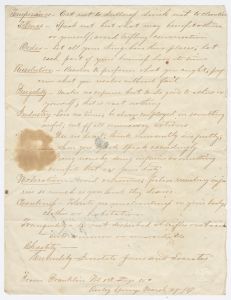 Temperance – Eat not to dullness drink not to elevation
Silence – Speak not but what may benefit others
or yourself, avoid trifling conversation
Order – Let all your things have their places, let
each part of your business have its time
Resolution – Resolve to perform what you ought,
what you resolve without fail
Frugality – Make no expense but to do good to others or
yourself, that is waste nothing
Industry Lose no time be always employed in something
useful, cut off all unnecessary actions
Use no deceit think innocently and justly
when you speak speak accordingly
wrong none by doing injuries or omitting
benefits that are your duty
Moderation Avoid extremes, forbear resenting inju
ries so much as you think they deserve
Cleanliness Tolerate no uncleanliness in your body
clothes or habitation
Tranquility Be not disturbed at trifles or at
accidents common or unavoidable
Chastity –
Humility Imitate Jesus and Socrates
From Franklin
Springs March 29